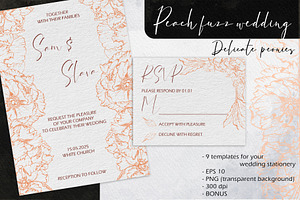 Peach fuzz wedding
Delicate peonies
TOGETHER
WITH THEIR FAMILIES
Sam &
Slava
REQUEST THE PLEASURE
OF YOUR COMPANY
TO CELEBRATE THEIR WEDDING
15.05.2025
WHITE CHURCH
RECEPTION TO FOLLOW
RSVP
PLEASE RESPOND BY 01.01
M
ACCEPT WITH PLEASURE
DECLINE WITH REGRET
- 9 templates for your
wedding stationery
- EPS 10
- PNG (transparent background)
- 300 dpi
- BONUS